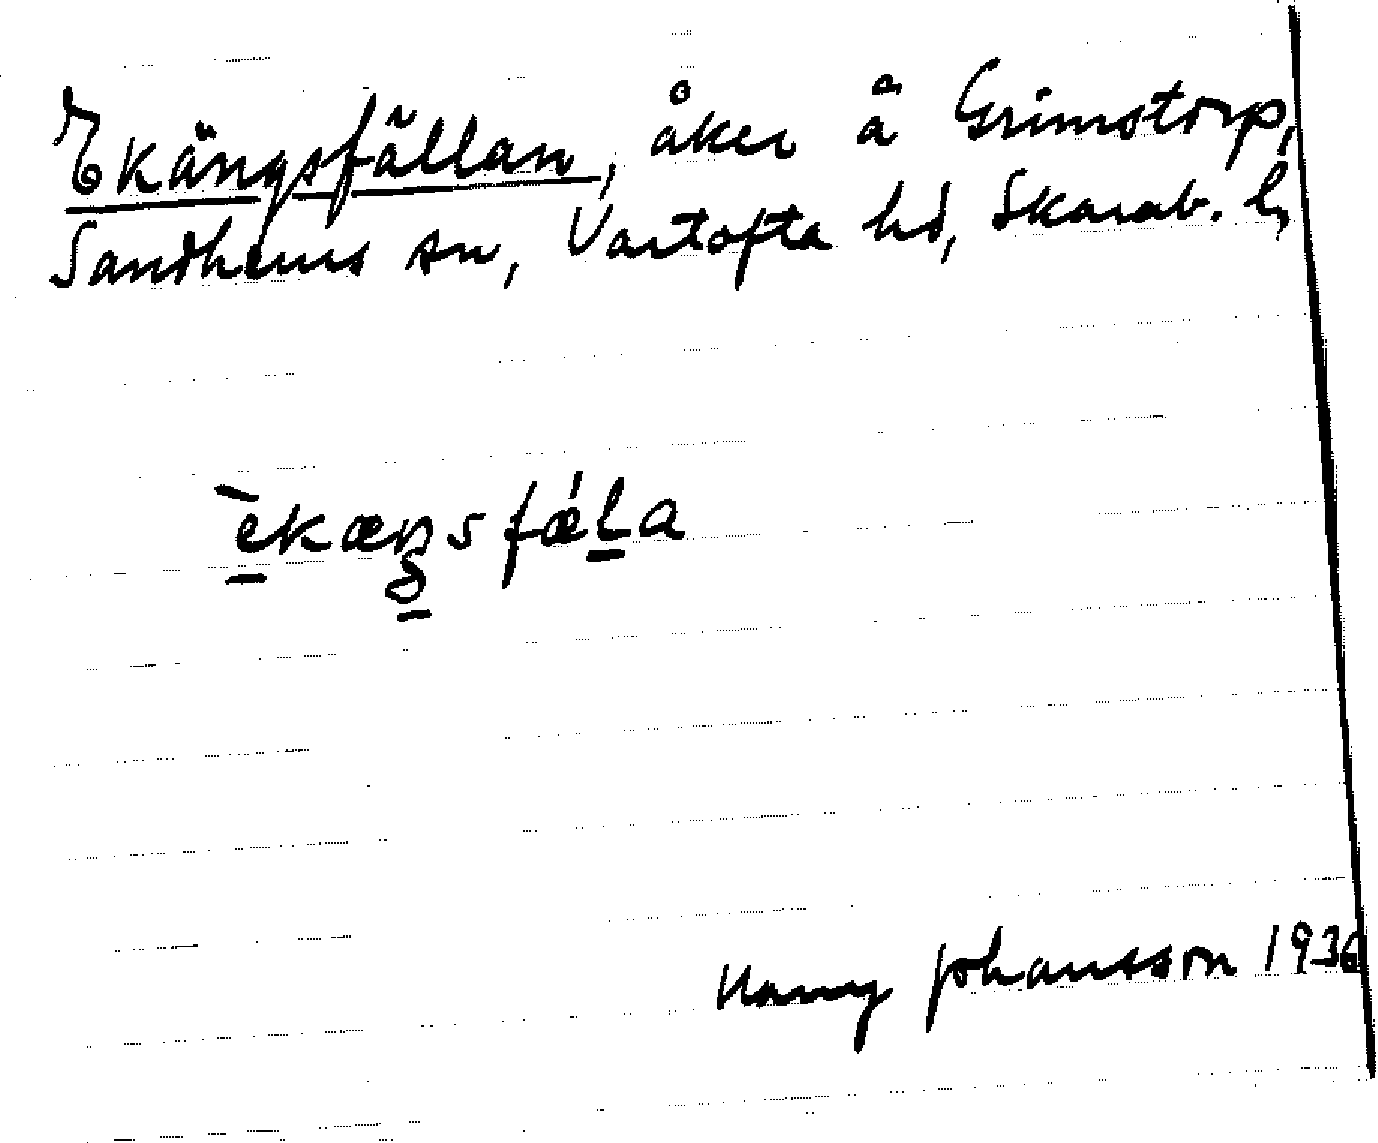 Ekängsfällan, åker å Grimstorp,
Sandhems sn, Vartofta hd, Skarab. l,
èkæŋsfǽla
Harry Johansson 1936